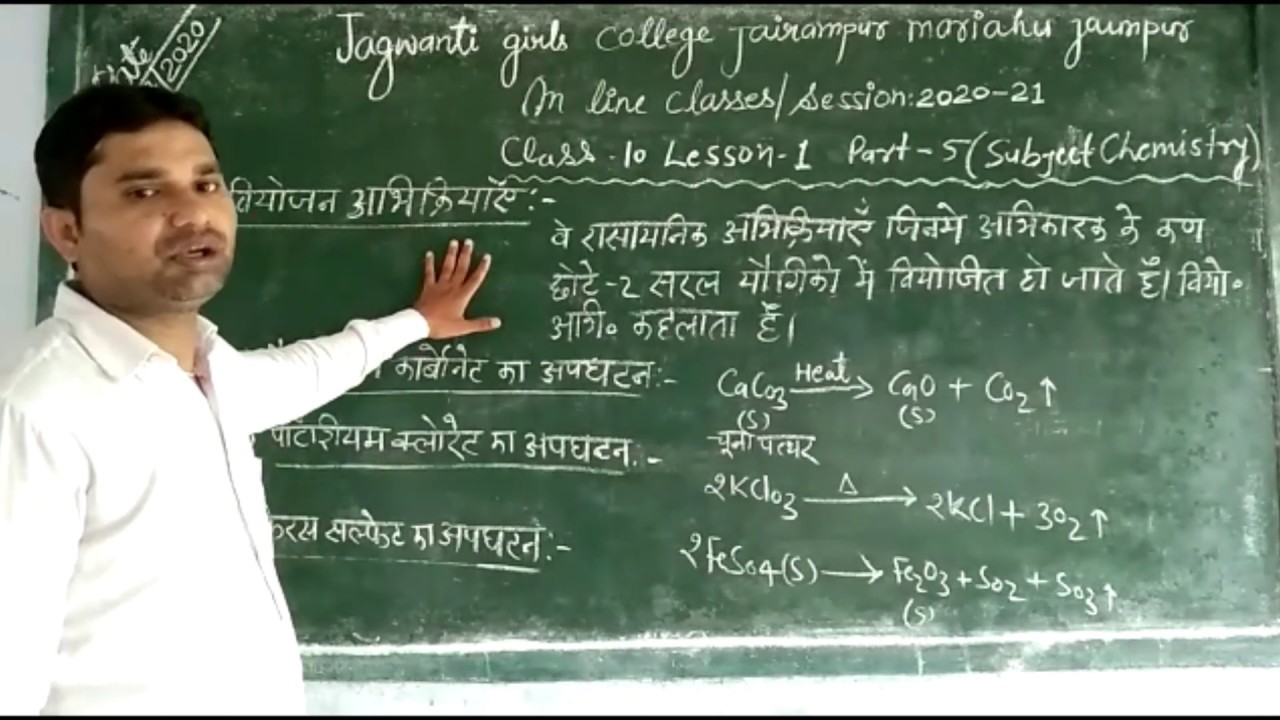 2020
Jagwanti girls college Jairampur mariahu jaunpur
On line classes/Session:2020-21
Class-10 Lesson-1 Part-5(Subject Chemistry)
वियोजन अभिक्रियाएँ:-
वे रासायनिक अभिक्रियाएँ जिनमे अभिकारक के कण
छोटे-2 सरल यौगिको में वियोजित हो जाते हैं। वियो०
अभि० कहलाता हैं।
कार्बोनेट का अपघटन:- CaCO3 Heat→ CaO + CO2↑
(S) (S)
चूना पत्थर
पोटाशियम क्लोरेट का अपघटन:- 2KClO3 Δ→ 2KCl + 3O2↑
फेरस सल्फेट का अपघटन:- 2FeSO4(S) → Fe2O3 + SO2 + SO3↑
(S)